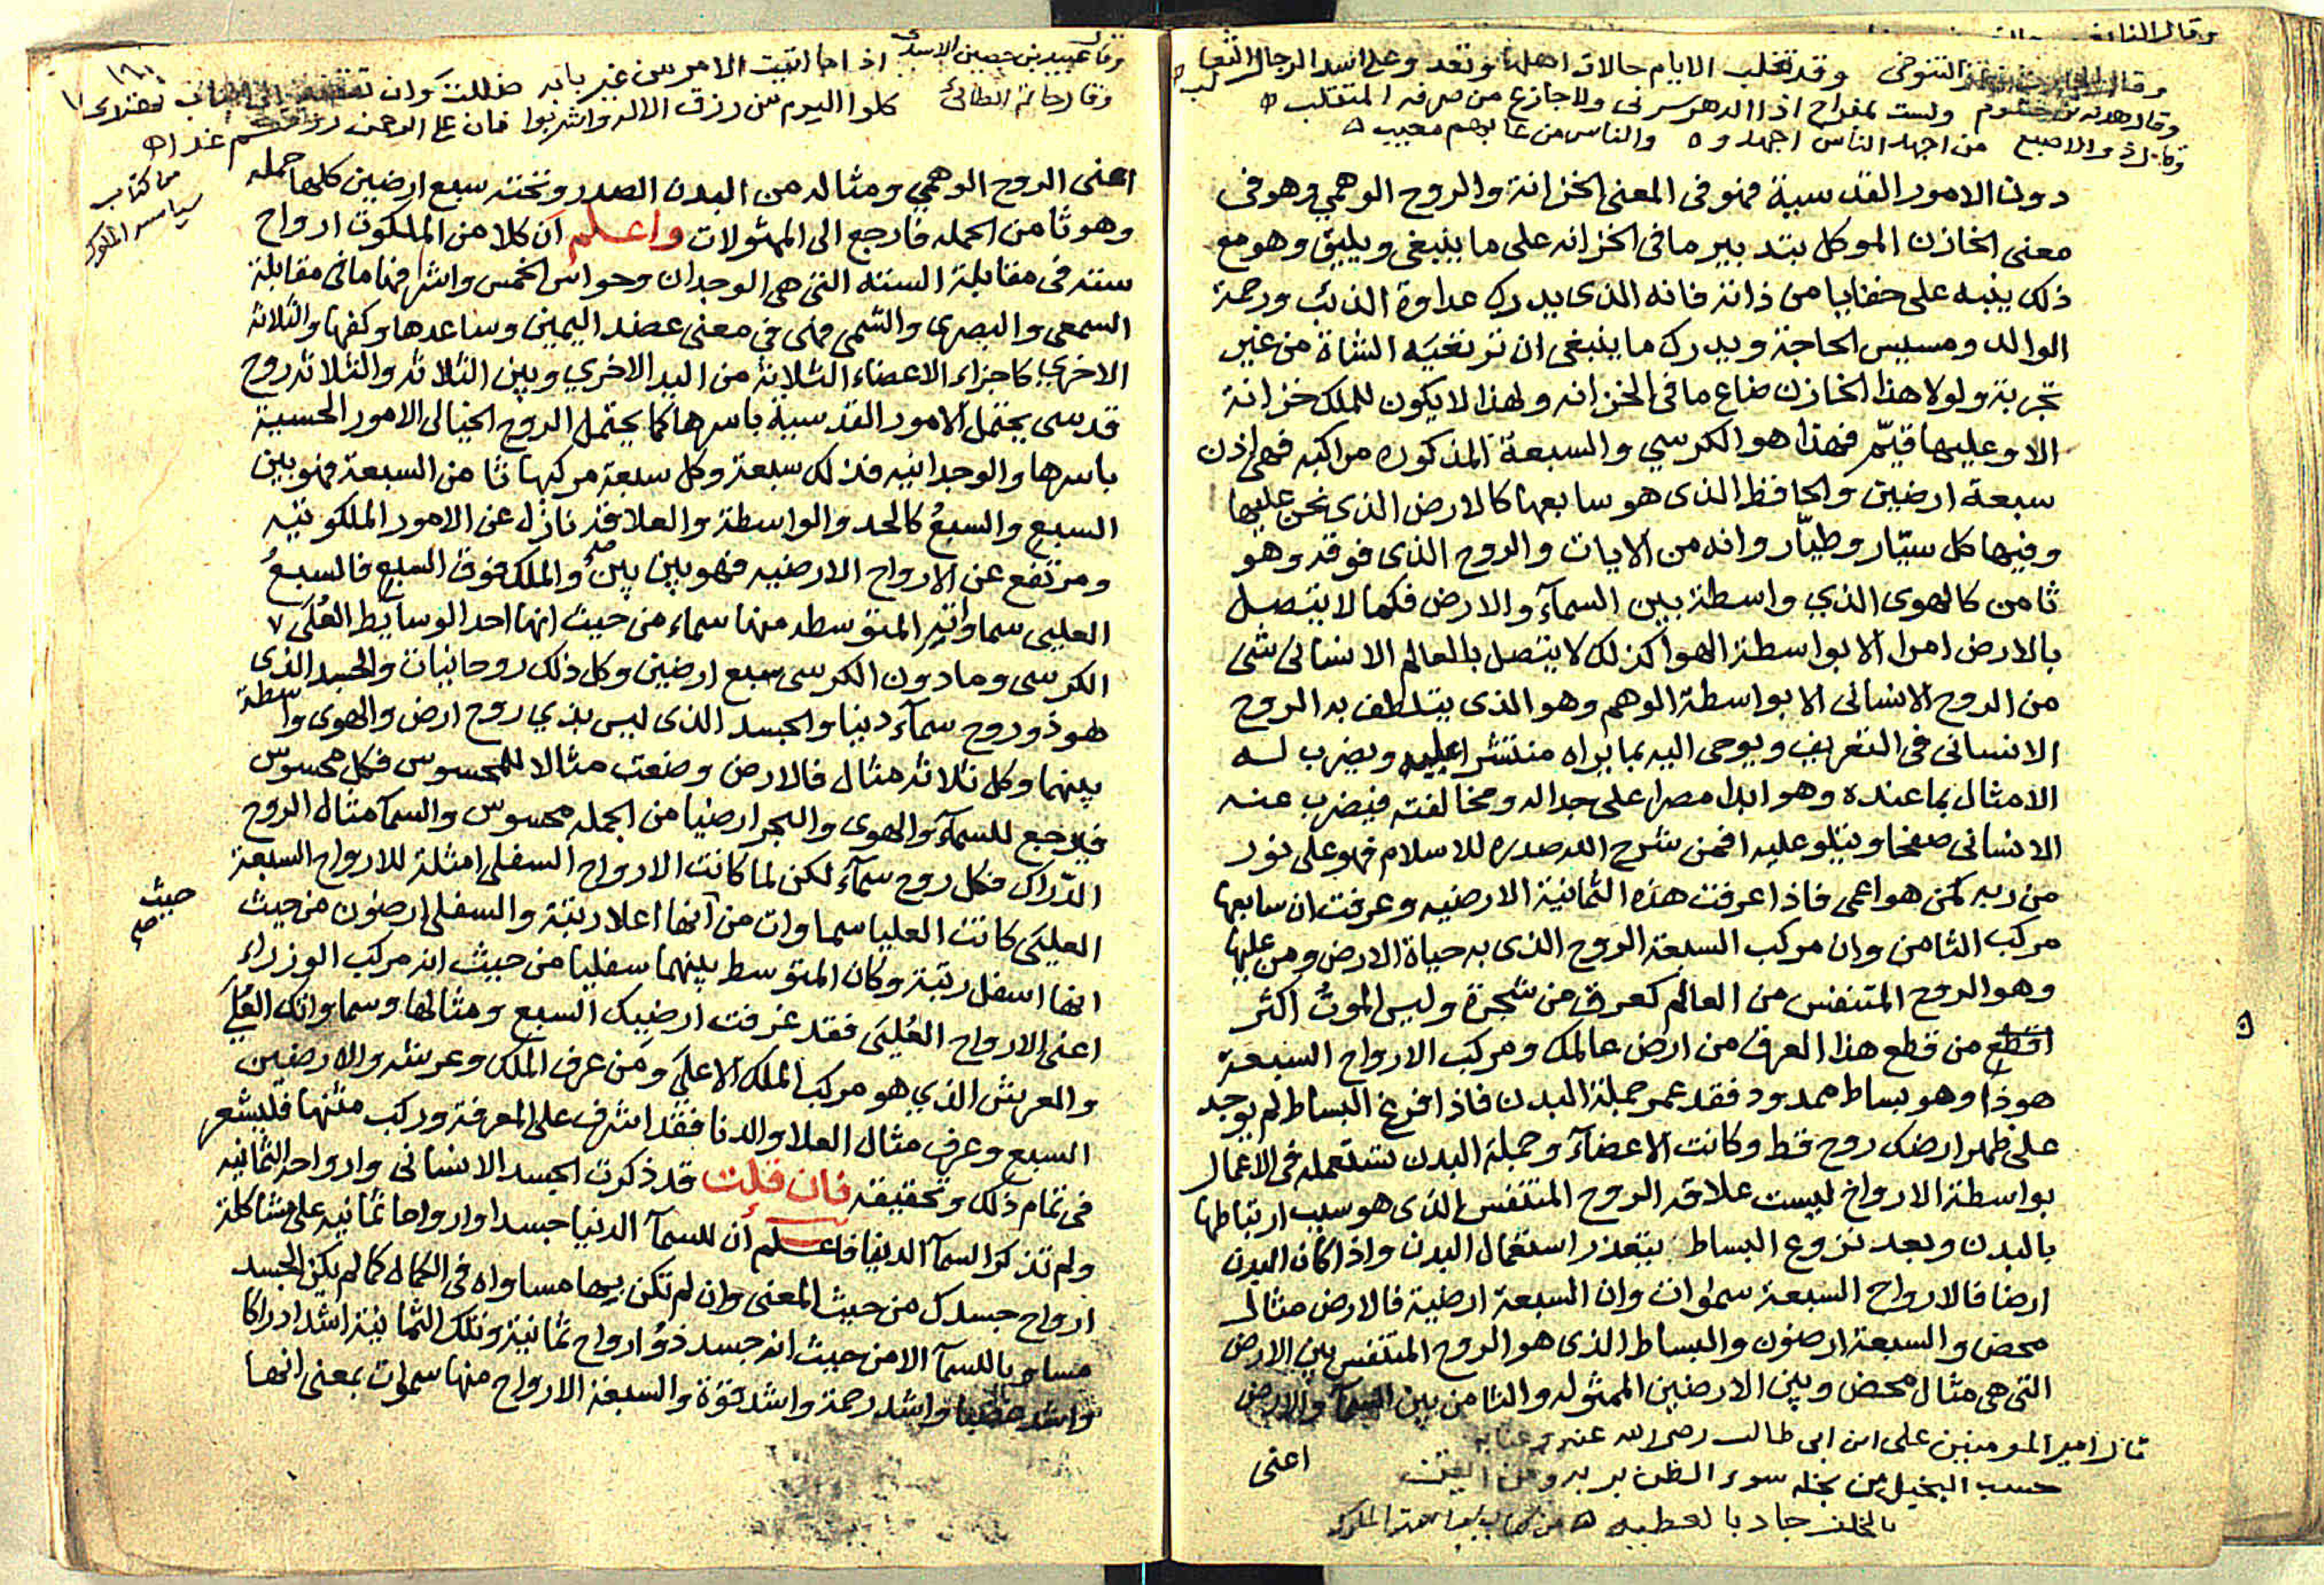 وقال التنوخى وقد تقلب الايام حالات اهلها وتعدو على اسد الرجال الثعالب
وقال هدبة بن خشرم ولست بمفراح اذا الدهر سرنى ولا جازع من صرفه المتقلب
وقال ذو الاصبع من اجهد الناس اجهدوه والناس من عابهم معيب
دون الامور القدسية فهو فى المعنى الخزانة والروح الوهمي وهو فى
معنى الخازن الموكل بتدبير ما فى الخزانه على ما ينبغى ويليق وهو مع
ذلك ينبه على خفايا من ذاته فانه الذى يدرك عداوة الذئب ورحمة
الوالد ومسيس الحاجة ويدرك ما ينبغى ان ترتعيه الشاة من غير
تجربة ولولا هذا الخازن ضاع ما فى الخزانه ولهذا لا يكون للملك خزانة
الا وعليها قيّم فهذا هو الكرسي والسبعة المذكوره مراكبه فهى اذن
سبعة ارضين والحافظ الذى هو سابعها كالارض الذى نحن عليها
وفيها كل سيّار وطيّار وانه من الايات والروح الذى فوقه وهو
ثامن كالهوى الذي واسطة بين السمآء والارض فكما لا يتصل
بالارض امرا الا بواسطة الهوا كذلك لا يتصل بالعالم الانسانى شى
من الروح الانسانى الا بواسطة الوهم وهو الذى يتلطف به الروح
الانسانى فى التعريف ويوحى اليه بما يراه منتشرا عليه ويضرب له
الامثال بما عنده وهو ابدا مصرا على جداله ومخالفته فيضرب عنه
الانسانى صفحا ويتلو عليه افمن شرح الله صدره للاسلام فهو على نور
من ربه كمن هو اعمى فاذا عرفت هذه الثمانية الارضيه وعرفت ان سابعها
مركب الثامن وان مركب السبعة الروح الذى به حياة الارض ومن عليها
وهو الروح المتنفس من العالم كعرق من شجرة وليس الموت اكثر
من قطع هذا العرق من ارض عالمك ومركب الارواح السبعة
هو ذا وهو بساط ممدود فقد عمر جملة البدن فاذا فرغ البساط لم يوجد
على ظهر ارضك روح قط وكانت الاعضآء وجملة البدن تستعمله فى الاعمال
بواسطة الارواح ليست علاقه الروح المتنفس الذى هو سبب ارتباطها
بالبدن وبعد نزوع البساط يتعذر استعمال البدن واذا كان البدن
ارضا فالارواح السبعة سموات وان السبعة ارضية فالارض مثال
محض والسبعة ارضون والبساط الذى هو الروح المتنفس بين الارض
التى هى مثال محض وبين الارضين الممثوله والثامن بين السمآ والارض
قال امير المومنين على ابن ابى طالب رضى الله عنه
حسب البخيل من بخله سوء الظن بربه ومن ايقن
بالخلف جاد بالعطيه
اعنى
وقال عبيد بن حصين الاسدى اذا ما اتيت الامر من غير بابه ضللت وان
وقال حاتم الطائى كلوا اليوم من رزق الاله واشربوا فان على الرحمن رزقكم غدا
من كتاب
سياسه الملوك
اعنى الروح الوهمي ومثاله من البدن الصدر وتحته سبع ارضين كلها حمله
وهو ثامن الحمله فارجع الى الممثولات واعلم ان كلا من الملكوت ارواح
سته فى مقابلة السته التى هى الوجدان وحواس الخمس واشرفها ما فى مقابلة
السمعى والبصرى والشمى فهى فى معنى عضد اليمين وساعدها وكفها والثلاثه
الاخرى كاجزاء الاعضاء الثلاثة من اليد الاخري وبين الثلاثه والثلاثه روح
قدسى يحتمل الامور القدسية باسرها كما يحتمل الروح الخيالى الامور الحسية
باسرها والوجدانيه فذلك سبعة وكل سبعة مركبها ثامن السبعة فهو بين
السبع والسبع كالحد والواسطة والعلاقه نازل عن الامور الملكوتيه
ومرتفع عن الارواح الارضيه فهو بين بين والملك فوق السبع فالسبع
العليى سماوات المتوسطه منها سماء من حيث انها احد الوسايط العلى
الكرسى وما دون الكرسى سبع ارضين وكل ذلك روحانيات والجسد الذى
هو ذو روح سمآء دنيا والجسد الذى ليس بذي روح ارض والهوى واسطة
بينهما وكل ثلاثه مثال فالارض وضعت مثالا للمحسوس فكل محسوس
فيرجع للسمآء والهوى والبحر ارضيا من الجمله محسوس والسمآ مثال الروح
الدّراك فكل روح سمآء لكن لما كانت الارواح السفلى امثلة للارواح السبعة
العليى كانت العليا سماوات من انها اعلا رتبة والسفلى ارضون من حيث
حيث
صح
انها اسفل رتبة وكان المتوسط بينهما سفليا من حيث انه مركب الوزراء
اعنى الارواح العليى فقد عرفت ارضيك السبع ومثالها وسماواتك العلى
والعرش الذي هو مركب الملك الاعلى ومن عرف الملك وعرشه والارضين
السبع وعرف مثال العلا والدنا فقد اشرف على المعرفة وركب متنها فليشعر
فى تمام ذلك وتحقيقه فان قلت قد ذكرت الجسد الانسانى وارواحه الثمانيه
ولم تذكر السمآ الدنيا فاعلم ان للسمآ الدنيا جسدا وارواحا ثمانيه على مشاكلة
ارواح جسدك من حيث المعنى وان لم تكن بها مساواه فى الكمال كما لم يكن الجسد
مساو بالسمآ الا من حيث انه جسد ذو ارواح ثمانية وتلك الثمانية اشد ادراكا
واشد حفظا واشد رحمة واشد قوة والسبعة الارواح منها سموات بمعنى انها